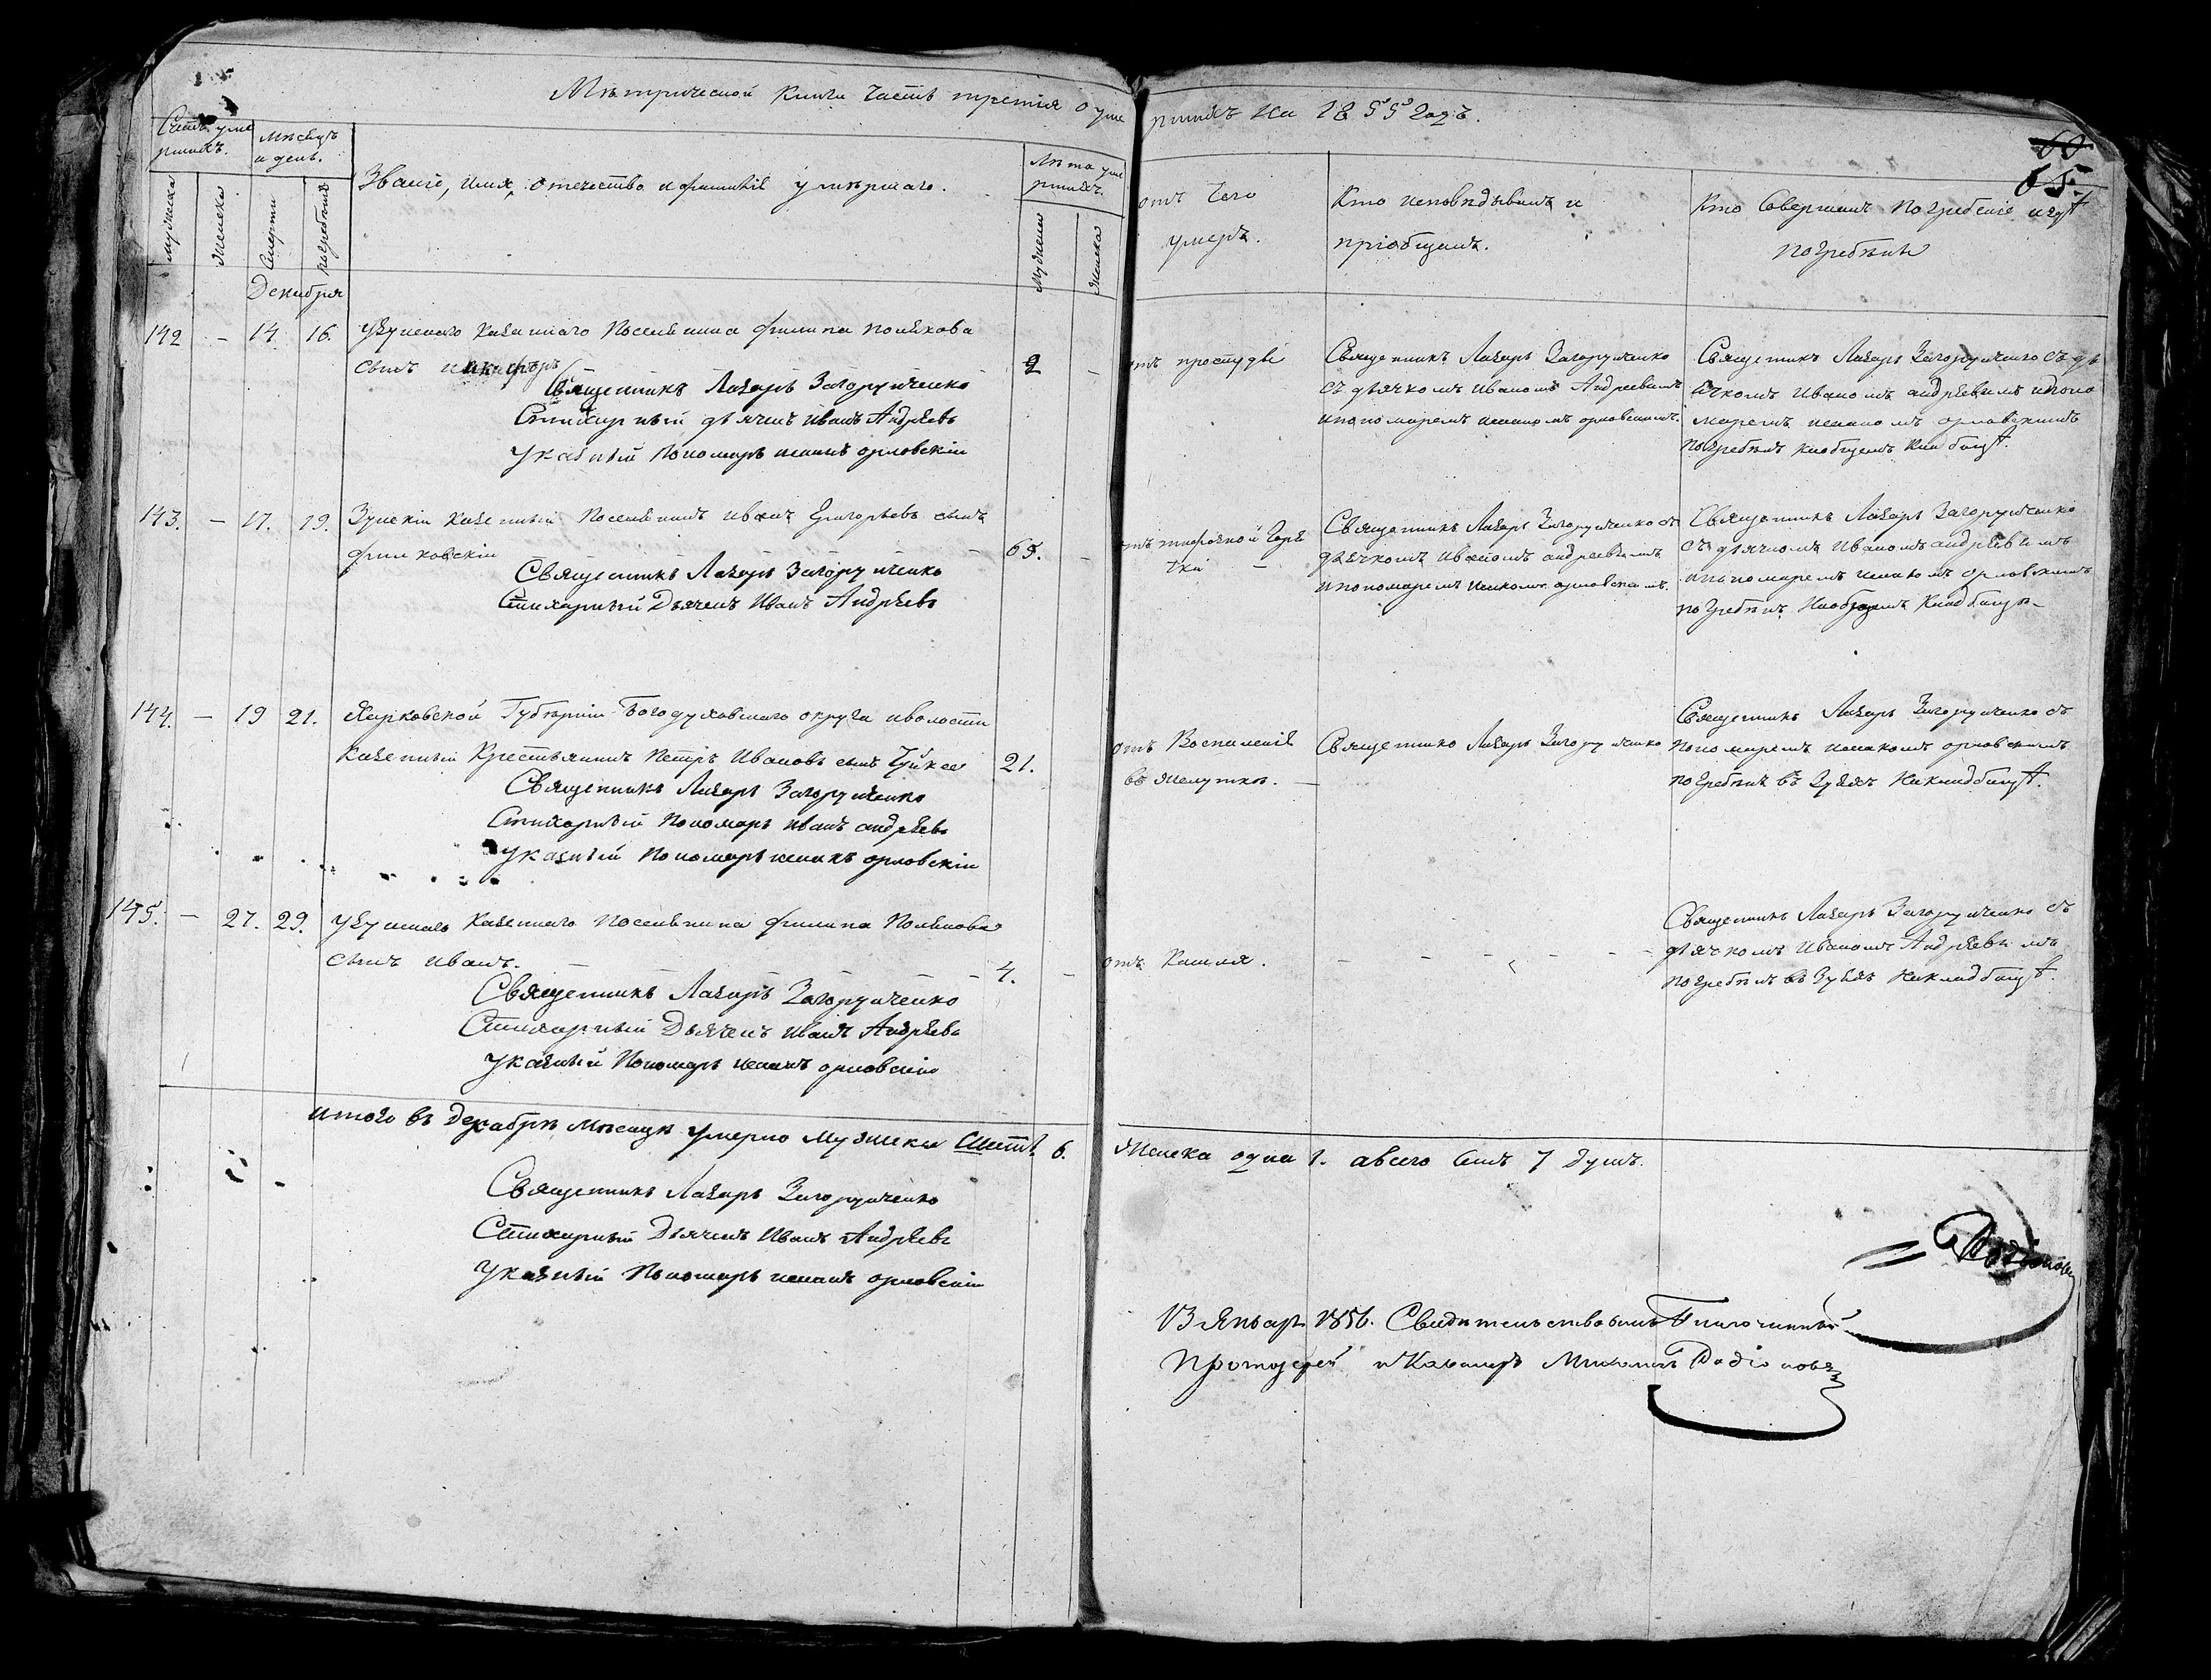 Метрической книги часть третія о уме
ршихъ на 1855 годъ.
60
65.
Счетъ уме
ршихъ.
Мѣсяцъ
и день.
Званіе, имя, отечество и фамилія умершаго.
Лѣта уме
ршихъ.
мужеска
женска
смерти
погребенія
Мужеска
женска
отъ чего
умеръ.
Кто исповѣдывалъ и
пріобщалъ.
Кто совершалъ погребеніе и гдѣ
погребены
Декабря
142 - 14 16. казеннаго поселянина филипа полякова
сынъ никифоръ 2 -
Священникъ Лазарь Загоруйченко
Стихарный дьячекъ иванъ Андреевъ
Указный пономарь орловскій
отъ простуды
Священникъ Лазарь Загоруйченко
съ дьячкомъ Иваномъ Андреевымъ
и пономаремъ орловскимъ.
Священникъ Лазарь Загоруйченко съ дь
ячкомъ Иваномъ андреевымъ и поно
маремъ орловскимъ
погребенъ на общемъ кладбищѣ.
143. - 17. 19. казенный поселянинъ иванъ Григорьевъ сынъ
65. -
Священникъ Лазарь Загоруйченко
Стихарный Дьячекъ Иванъ Андреевъ
отъ горя
чки -
Священникъ Лазарь Загоруйченко съ
дьячкомъ Иваномъ андреевымъ
и пономаремъ орловскимъ.
Священникъ Лазарь Загоруйченко
съ дьячкомъ Иваномъ андреевымъ
и пономаремъ орловскимъ
погребенъ на общемъ кладбищѣ
144. - 19 21. Харковской Губерніи Богодуховскаго округа и волости
казенный крестьянинъ Петръ Ивановъ сынъ 21.
Священникъ Лазарь Загоруйченко
Стихарный пономарь иванъ андреевъ
Указный пономарь орловскій
отъ воспаленія
въ желудкѣ. -
Священникъ Лазарь Загоруйченко
Священникъ Лазарь Загоруйченко съ
пономаремъ орловскимъ
погребенъ въ на кладбищѣ.
145. - 27. 29. казеннаго поселянина филипа Полякова
сынъ иванъ. 4. -
Священникъ Лазарь Загоруйченко
Стихарный Дьячекъ иванъ Андреевъ
Указный Пономарь орловскій
отъ кашля.
Священникъ Лазарь Загоруйченко съ
дьячкомъ Иваномъ Андреевымъ
погребенъ въ на кладбищѣ.
итого въ декабрѣ мѣсяцѣ умерло мужеска шесть 6.
женска одна 1. а всего семь 7 душъ.
Священникъ Лазарь Загоруйченко
Стихарный Дьячекъ Иванъ Андреевъ
Указный Пономарь орловскій
Родіоновъ
13 Январь 1856. Свидѣтельствовалъ Благочинный
Протоіерей и Кавалеръ Родіоновъ